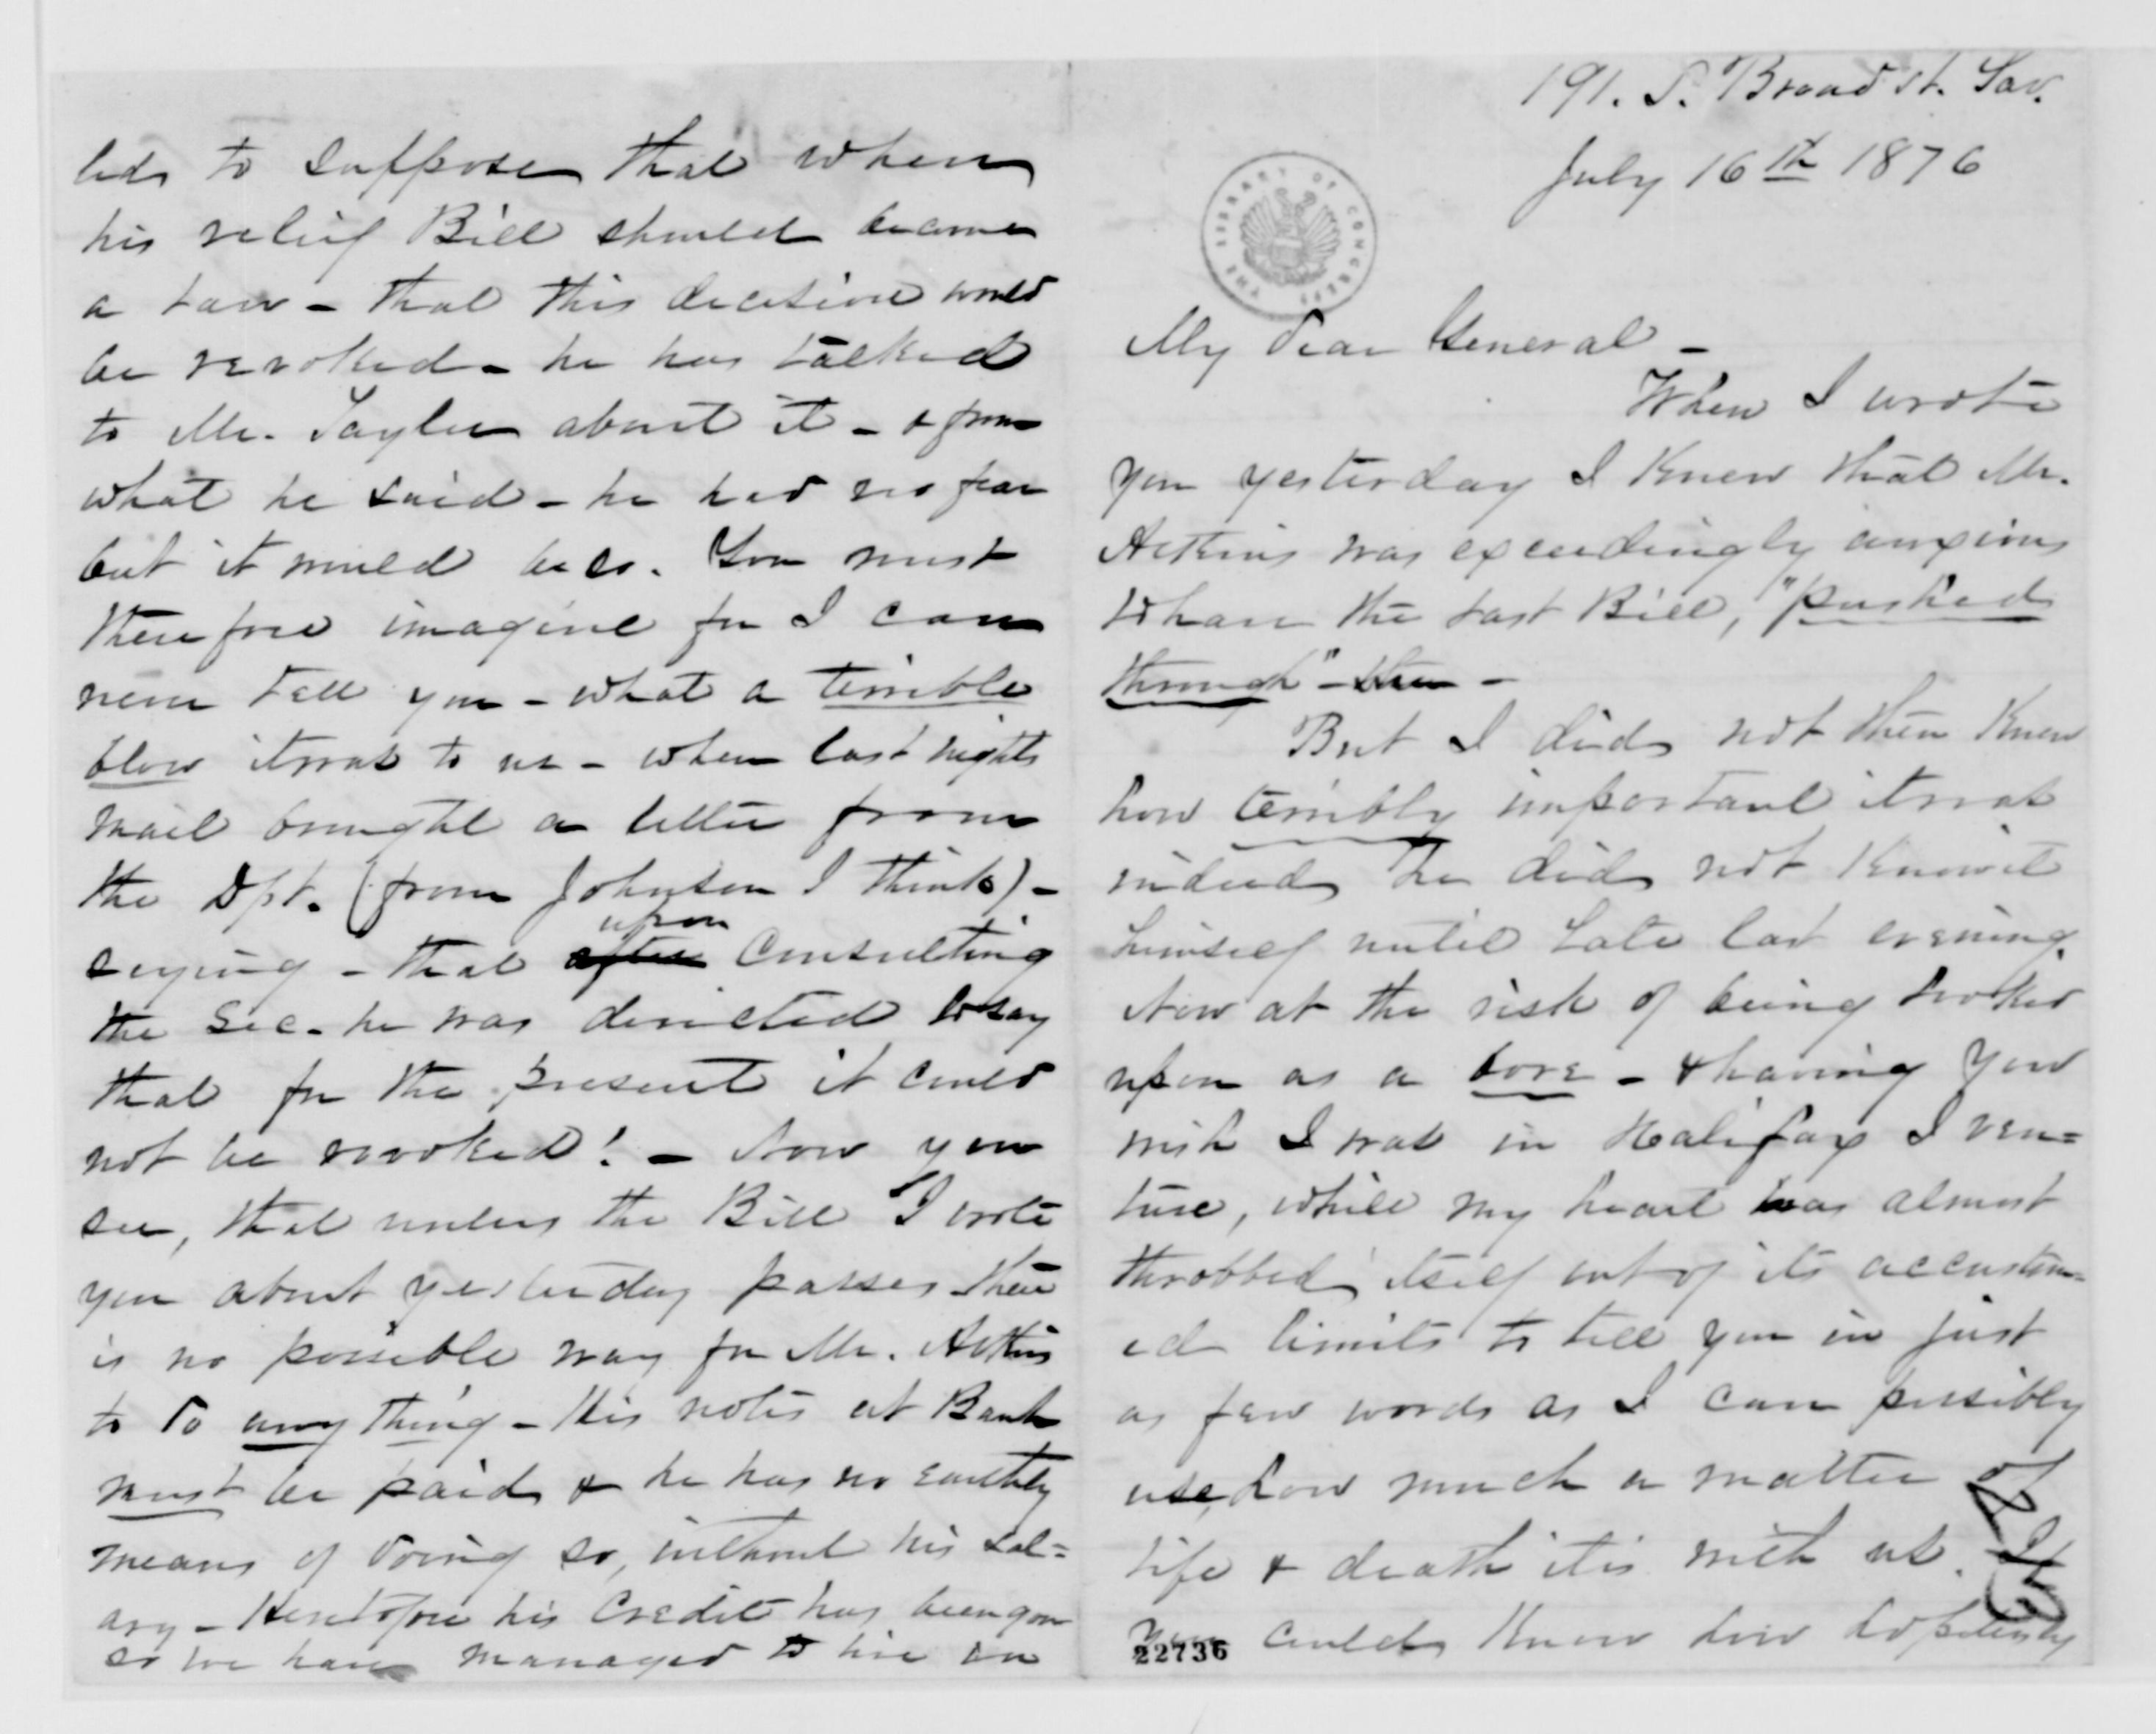 191. S. Broad St. Sav.
July 16th 1876
THE LIBRARY OF CONGRESS
My dear General -
When I wrote
you yesterday I knew that Mr.
Atkins was exceedingly anxious
to have the last Bill, "pushed
through" - then -
But I did not then know
how terribly important it was
indeed he did not know it
himself until late last evening.
Now at the risk of being looked
upon as a bore - & having you
wish I was in Halifax I ven=
ture, while my heart has almost
throbbed itself out of its accustom=
ed limits to tell you in just
as few words as I can possibly
use, how much a matter of
life & death it is with us. If
you could know how hopelessly
22736
led to suppose that when
his relief Bill should become
a law - that this decision would
be revoked - he has talked
to Mr. Tayler about it - & from
what he said - he had no fear
but it would be so. You must
therefore imagine for I can
never tell you - what a terrible
blow it was to us - when last nights
mail brought a letter from
the Dpt. (from Johnson I think) -
saying - that after upon consulting
the Sec. he was directed to say
that for the present it could
not be revoked! - Now you
see, that unless the Bill I wrote
you about yesterday passes there
is no possible way for Mr. Atkins
to do any thing - His notes at Bank
must be paid & he has no earthly
means of doing so, without his sal=
ary - Heretofore his credit has been good
so we have managed to live on